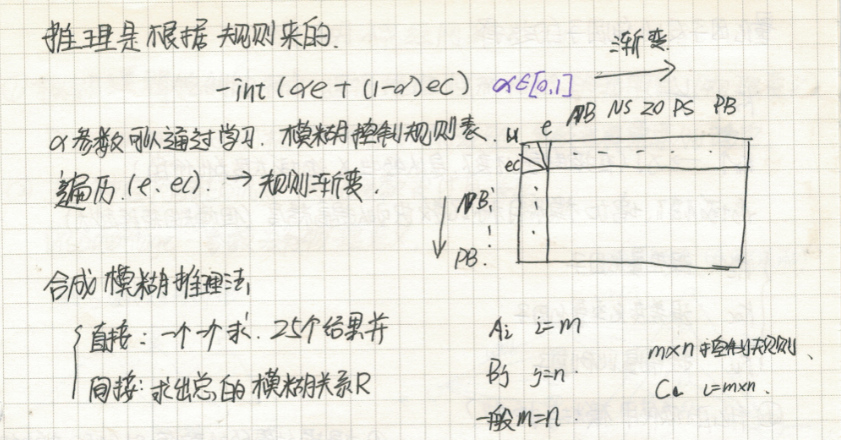 推理是根据规则来的.
-int (αe + (1-α) ec) α∈[0,1]
渐变
α参数可以通过学习. 模糊控制规则表.
u e NB NS ZO PS PB
ec
遍历.(e、ec). → 规则渐变.
NB
PB.
合成模糊推理法,
直接: 一个一个求. 25个结果并
间接: 求出总的模糊关系R
Ai i=m
Bj j=n.
一般m=n.
m×n 控制规则、
i=m×n.